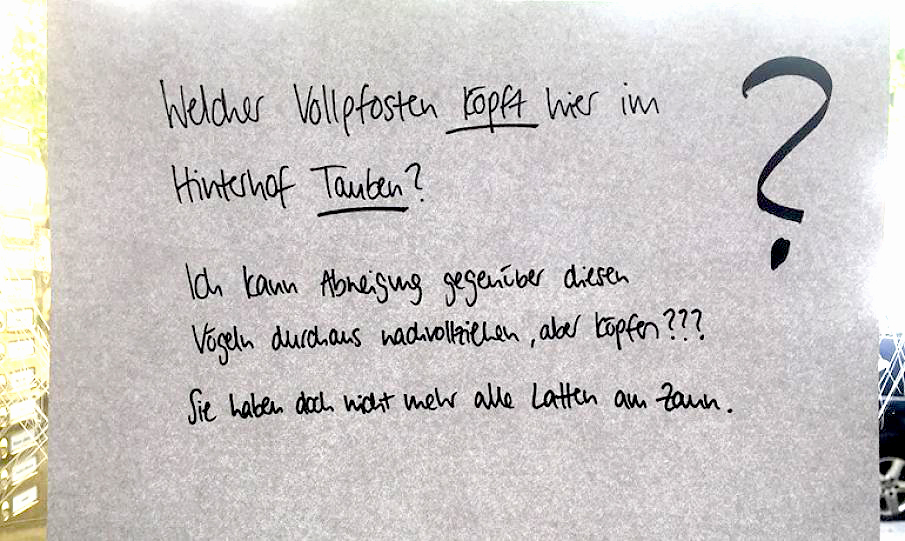 Welcher Vollpfosten köpft hier im
Hinterhof Tauben?
Ich kann Abneigung gegenüber diesen
Vögeln durchaus nachvollziehen, aber köpfen???
Sie haben doch nicht mehr alle Latten am Zaun.
?